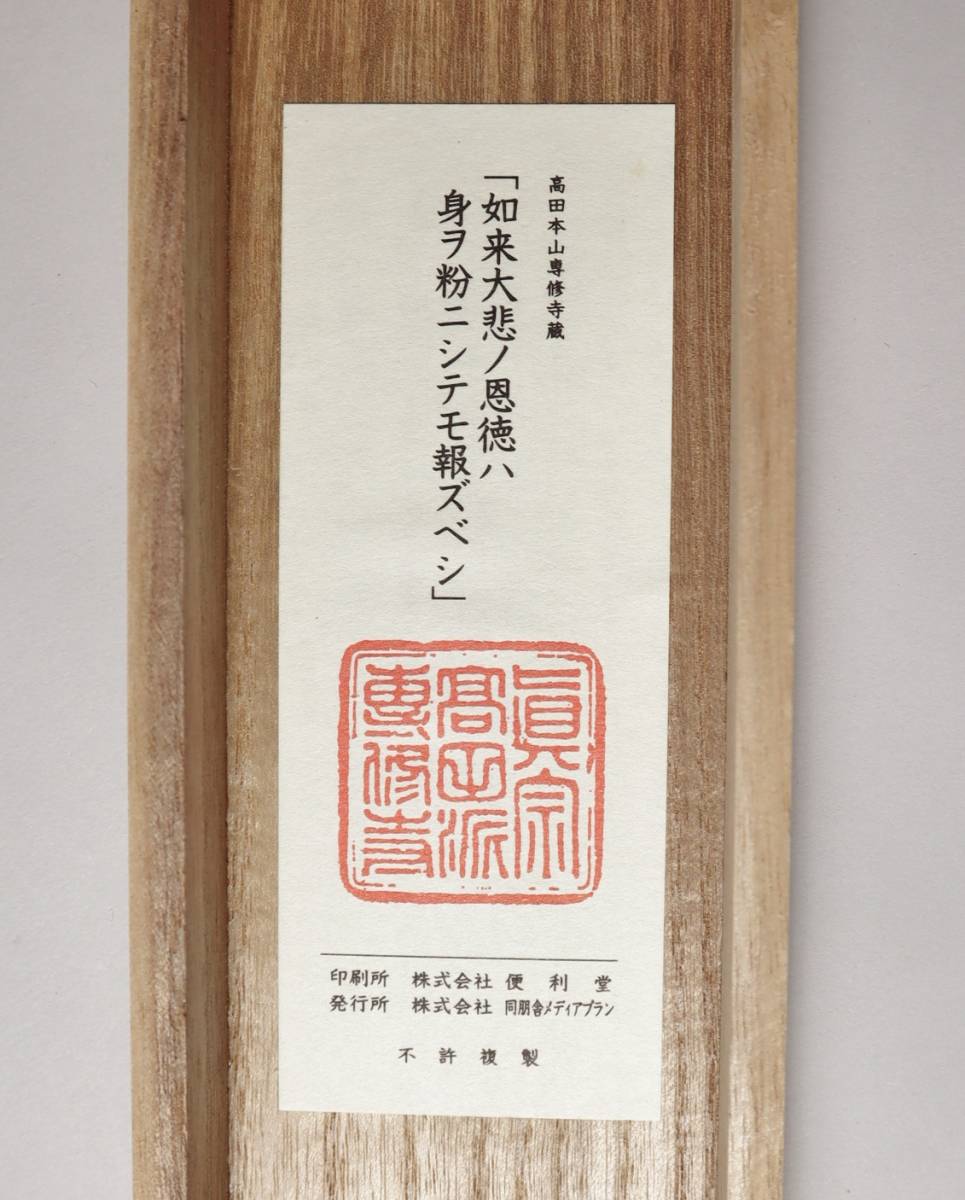 高田本山専修寺蔵
「如来大悲ノ恩徳ハ
身ヲ粉ニシテモ報ズベシ」
眞宗
髙田派
專修寺
印刷所 株式会社 便利堂
発行所 株式会社 同朋舎メディアプラン
不許複製